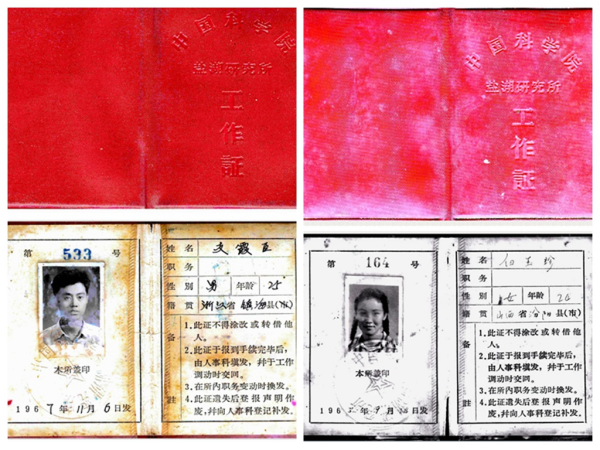 中国科学院
盐湖研究所
工作証
中国科学院
盐湖研究所
工作証
第 533 号
本所盖印
1967年11月6日发
姓名
职务
性别 男 年龄 25
籍贯 浙江省镇海县(市)
备註
1.此证不得涂改或转借他人。
2.此证于报到手续完毕后,
由人事科填发,并于工作
调动时交回。
3.在所内职务变动时换发。
4.此证遗失后登报声明作
废,并向人事科登记补发。
第 164 号
本所盖印
196 年 月 日发
姓名
职务
性别 女 年龄
籍贯 省 县(市)
备註
1.此证不得涂改或转借他人。
2.此证于报到手续完毕后,
由人事科填发,并于工作
调动时交回。
3.在所内职务变动时换发。
4.此证遗失后登报声明作
废,并向人事科登记补发。